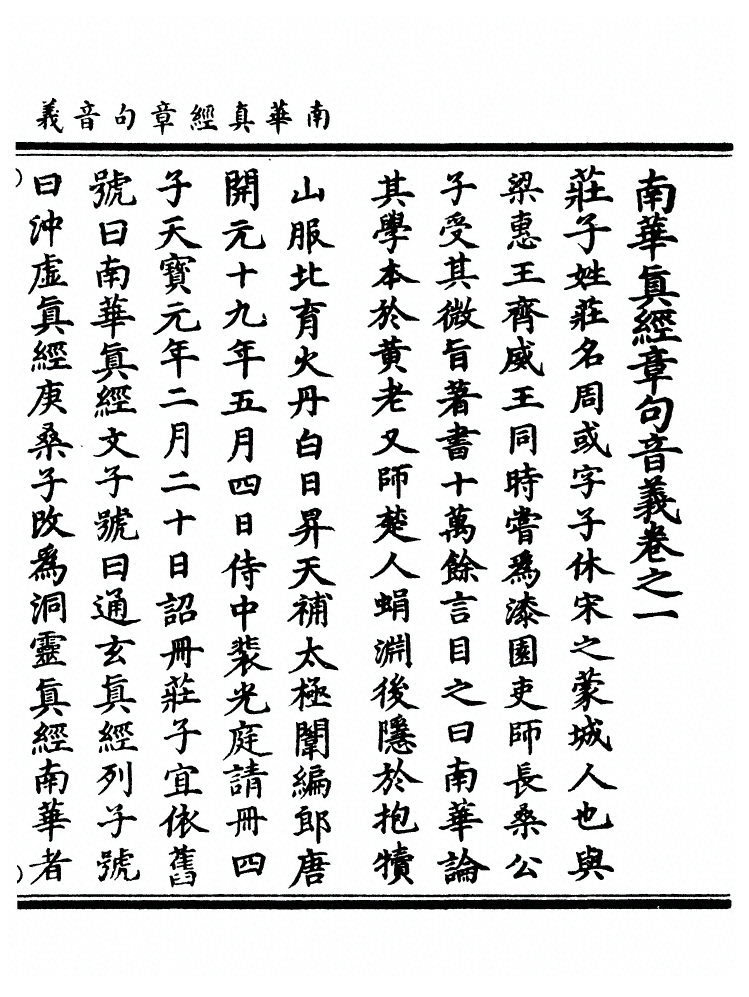 南華真經章句音義
南華眞經章句音義卷之一
莊子姓莊名周或字子休宋之蒙城人也與
梁惠王齊威王同時嘗爲漆園吏師長桑公
子受其微旨著書十萬餘言目之曰南華論
其學本於黄老又師楚人蜎淵後隱於抱犢
山服北育火丹白日昇天補太極闈編郎唐
開元十九年五月四日侍中裴光庭請冊四
子天寶元年二月二十日詔冊莊子宜依舊
號曰南華眞經文子號曰通玄眞經列子號
曰沖虛眞經庚桑子改爲洞靈眞經南華者